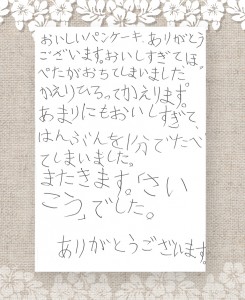 おいしいパンケーキ、ありがとう
ございます。おいしすぎて、ほっ
ぺたがおちてしまいました。
かえりひろってかえります。
あまりにもおいしすぎて、
はんぶんを1分でたべ
てしまいました。
またきます。「さい
こう」でした。
ありがとうございます。